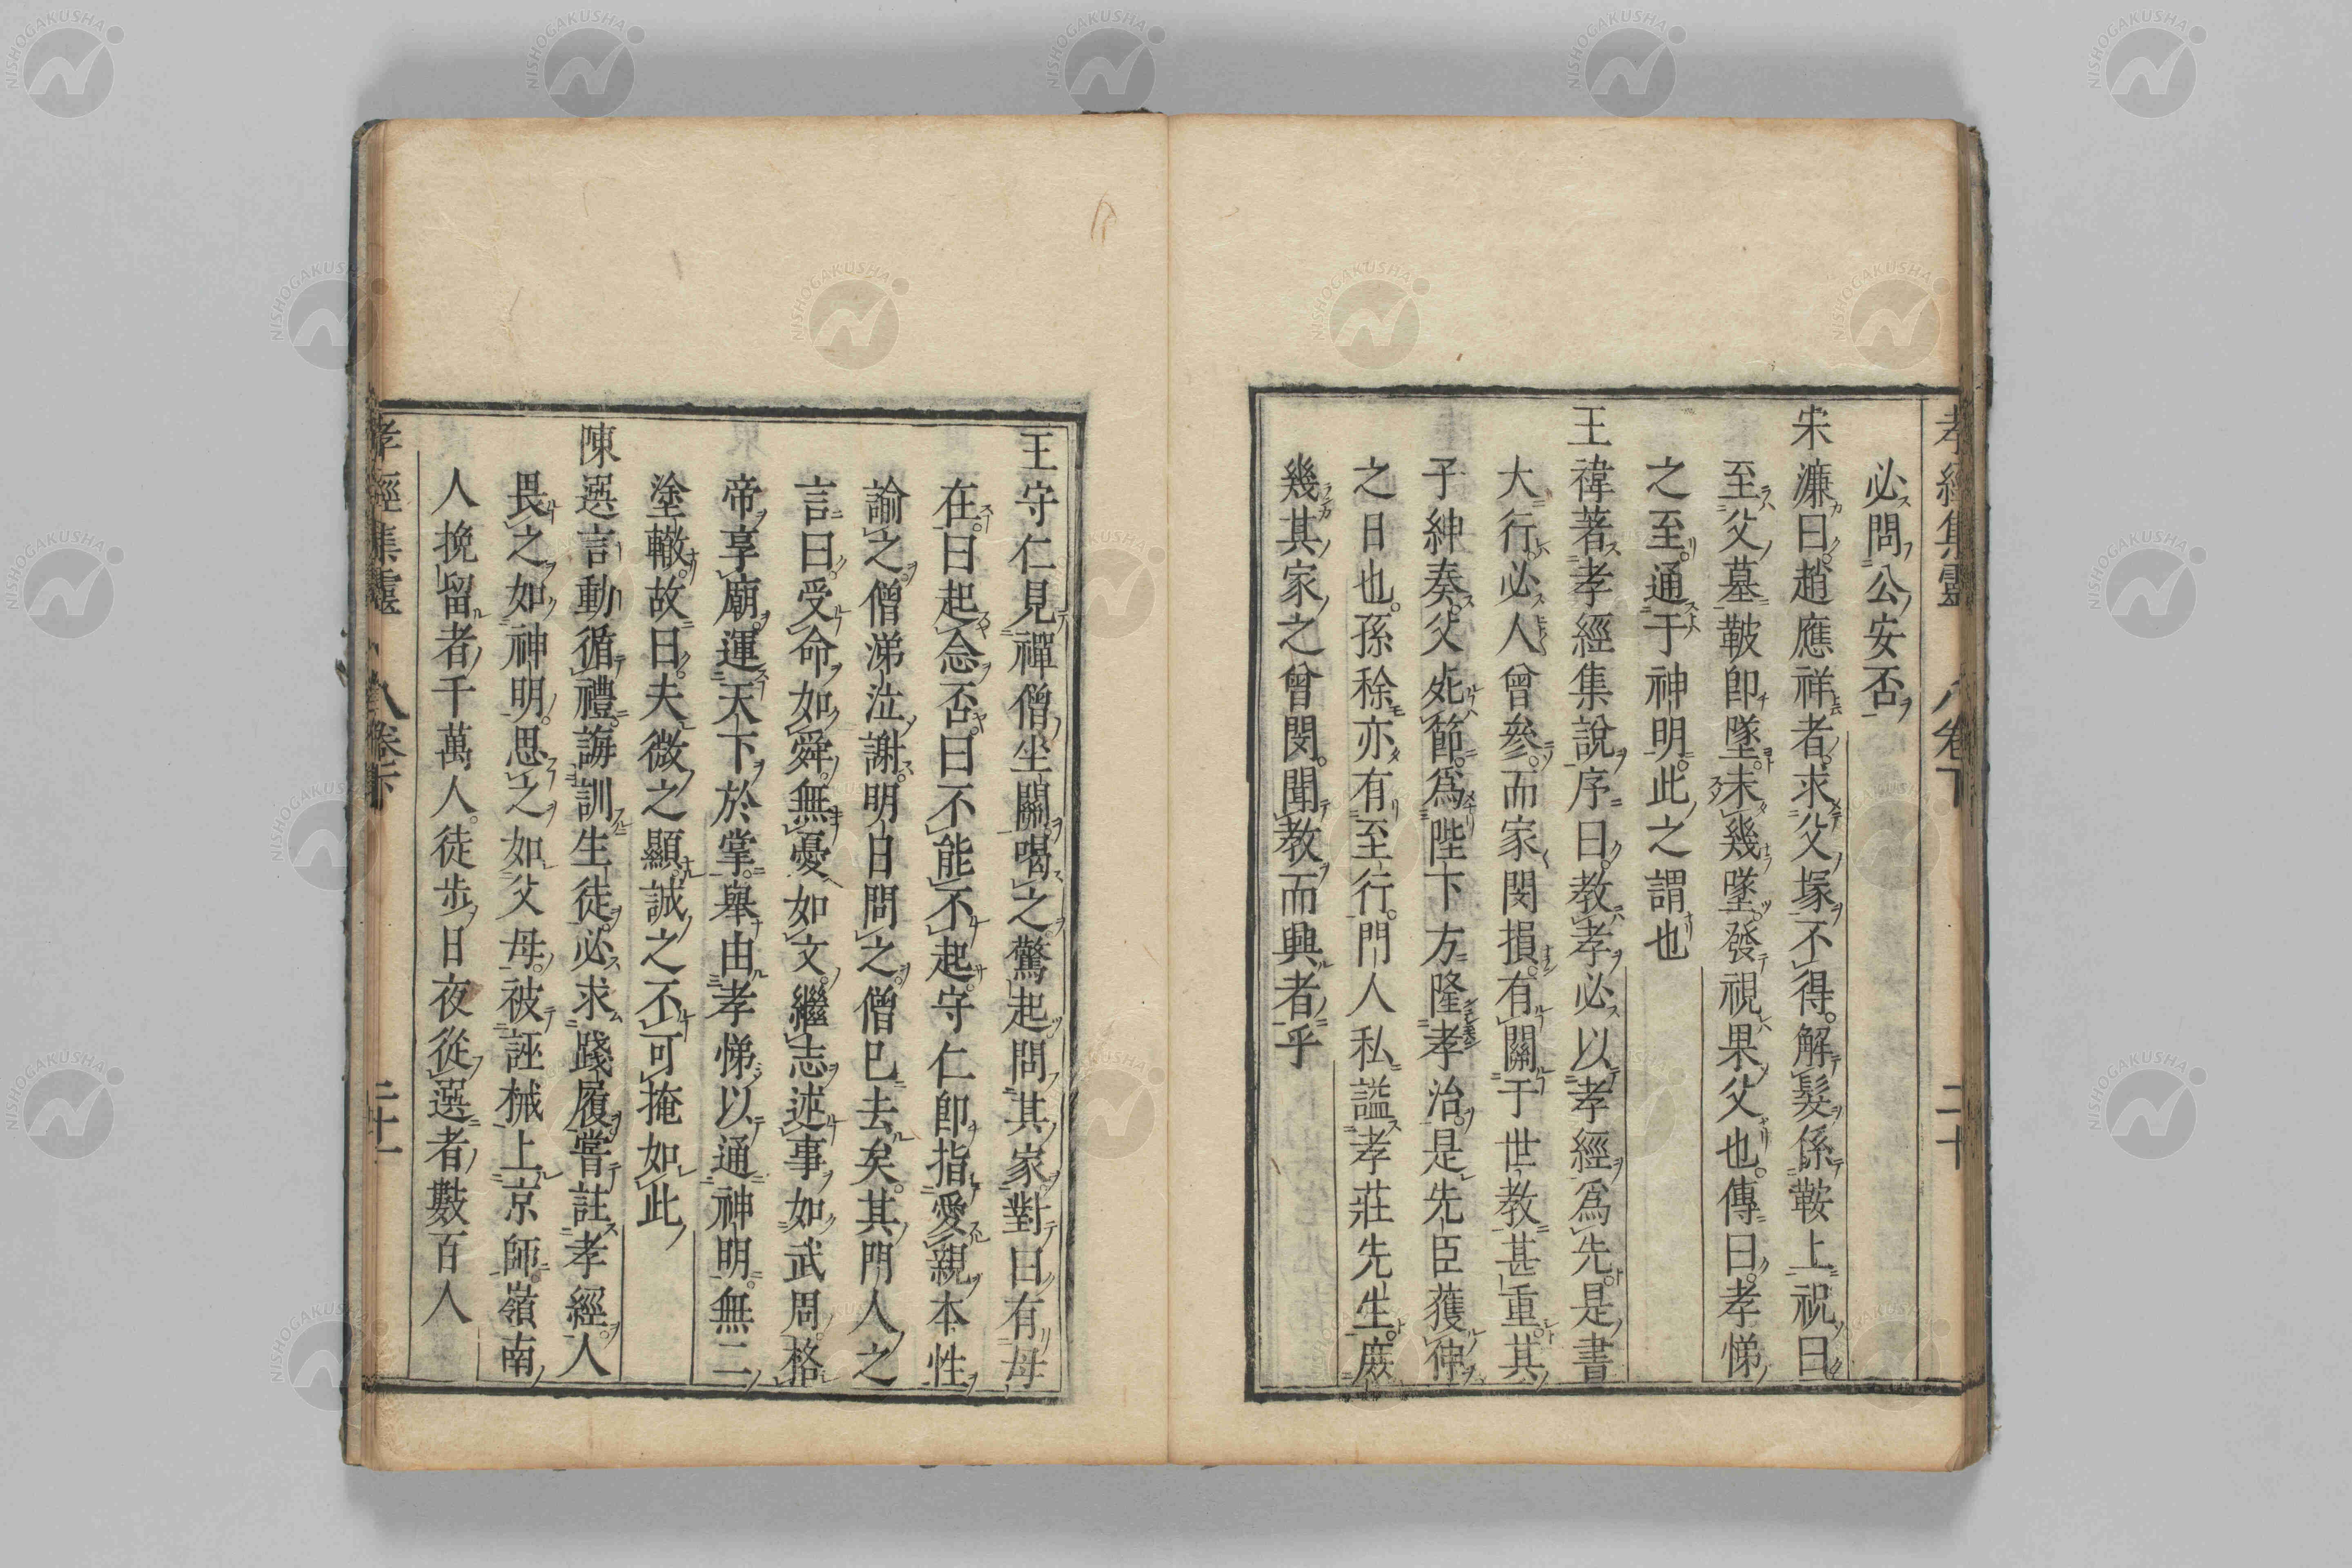 孝經集靈 八卷下 二十
必問公安否
宋濂曰趙應祥者求父塚不得解髮係鞍上祝曰
至父墓鞍卽墜未幾墜發視果父也傳曰孝悌
之至通于神明此之謂也
王禕著孝經集說序曰教孝必以孝經爲先是書
大行必人曾參而家閔損有關于世教甚重其
子紳奏父死節爲陛下方隆孝治是先臣獲伸
之日也孫稌亦有至行門人私謚孝莊先生蕨
幾其家之曾閔聞教而興者乎
王守仁見禪僧坐關喝之驚起問其家對曰有母
在曰起念否曰不能不起守仁卽指愛親本性
諭之僧涕泣謝明日問之僧已去矣其門人之
言曰受命如舜無憂如文繼志述事如武周格
帝享廟運天下於掌舉由孝悌以通神明無二
塗轍故曰夫微之顯誠之不可掩如此
陳選言動循禮誨訓生徒必求踐履嘗註孝經人
畏之如神明思之如父母被誣械上京師嶺南
人挽留者千萬人徒步日夜從選者數百人
孝經集靈 八卷下 二十一
NISHOGAKUSHA